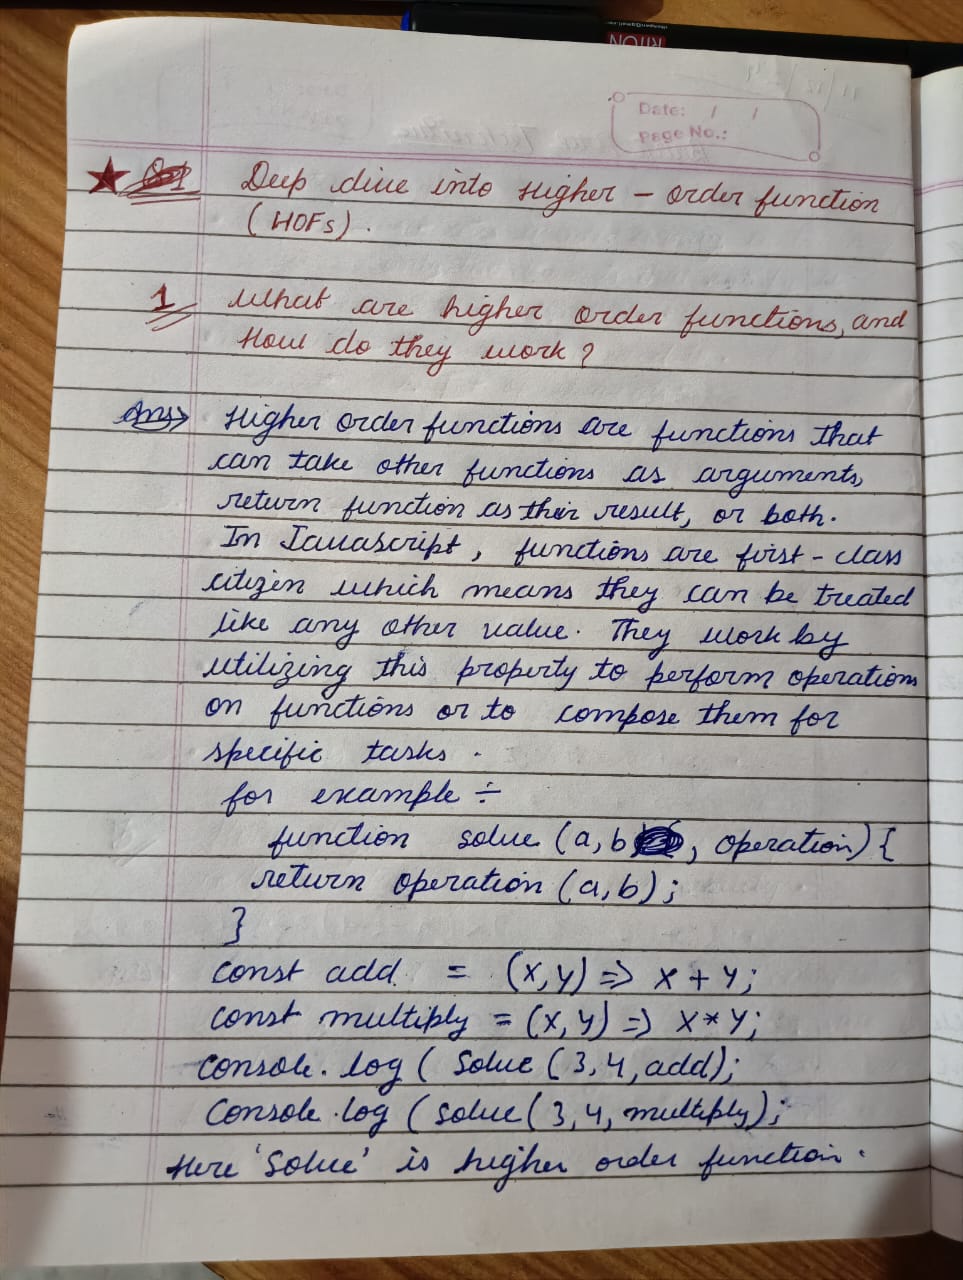 RITON
Date: / /
Page No.:
Deep dive into Higher - order function
(HOFs).
1 What are higher order functions, and
How do they work?
Ans> Higher order functions are functions that
can take other functions as arguments,
return function as their result, or both.
In Javascript, functions are first - class
citizen which means they can be treated
like any other value. They work by
utilizing this property to perform operations
on functions or to compose them for
specific tasks.
for example ÷
function solve (a,b , operation) {
return operation (a,b);
}
const add = (x,y) => x + y;
const multiply = (x,y) => x * y;
console.log ( Solve ( 3,4,add);
Console.log ( solve ( 3,4, multiply);
Here 'Solve' is higher order function.